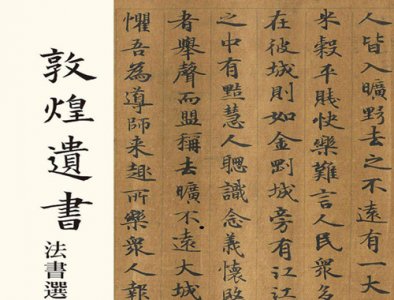 敦煌遺書
法書選
人皆入曠野去之不遠有一大
米穀平賤快樂難言人民衆
在彼城則如金剛城旁有江江
之中有黠慧人聰識念義懷
者舉聲而盟稱去曠不遠大城
懼吾為導師来趣所樂衆人報